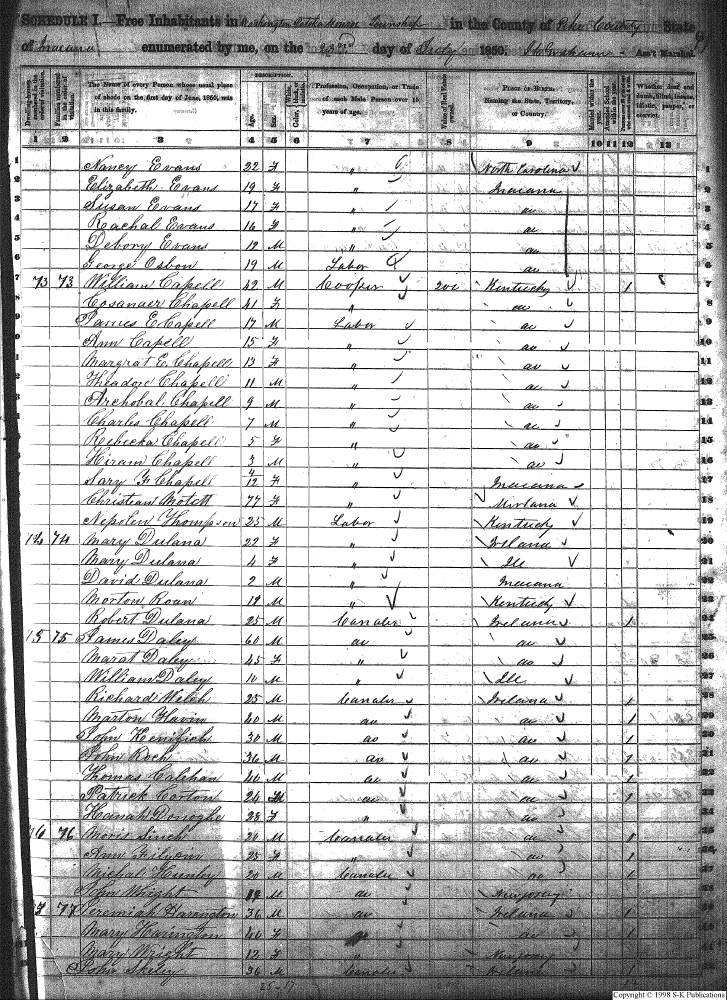 SCHEDULE I.—Free Inhabitants in Washington Township in the County of Pike County State
of Indiana enumerated by me, on the 23rd day of July 1850. Ass't Marshal.
DESCRIPTION.
The Name of every Person whose usual place of abode on the first day of June, 1850, was in this family.
Age.
Sex.
Profession, Occupation, or Trade of each Male Person over 15 years of age.
Value of Real Estate owned.
PLACE OF BIRTH. Naming the State, Territory, or Country.
Whether deaf and dumb, blind, insane, idiotic, pauper, or convict.
1 2 3 4 5 6 7 8 9 10 11 12 13
1 Nancy Evans 22 F " North Carolina 1
2 Elizabeth Evans 19 F " Indiana 2
3 Susan Evans 17 F " do 3
4 Rachal Evans 16 F " do 4
5 Debory Evans 12 M " do 5
6 George Osbon 19 M Labor do 6
7 73 73 William Capell 42 M Cooper 200 Kentucky 1 7
8 Cosander Chapell 41 F " do 8
9 James E Capell 17 M Labor do 9
Ann Capell 15 F " do 10
Margrat E. Chapell 13 F " do 11
Theadore Chapell 11 M " do 12
Archobal Chapell 9 M " do 13
Charles Chapell 7 M " do 14
Rebecka Chapell 5 F " do 15
Hiram Chapell 3 M " do 16
Sary F Chapell 12 F " Indiana 17
Christian Motett 77 F " 18
Nepolen Thompson 25 M Labor Kentucky 19
74 Mary Dulana 22 F " Ireland 20
Mary Dulana 4 F " Ill 21
David Dulana 2 M " Indiana 22
Morton Roan M " Kentucky 23
Robert Dulana 25 M Canaler Ireland 1 24
75 75 James Daley 60 M do do 25
Marat Daley 45 F " do 26
William Daley 10 M " Ill 27
Richard Welch 25 M Canaler Ireland 1 28
Marton Flavin 40 M do do 1 29
John Kenifich 30 M do do 1
John Roch 36 M do do 1
Thomas Calehan 40 M do do 1
Patrick Corton 24 M do do 1
Hanah Donoghe 28 F " do
76 76 Moris M Canaler do 1
Ann 25 F " do
Michal Hunley 20 M Canaler do 1
John Wright M do New Jersey
77 Jeremiah Harington 36 M do Ireland 1
Mary Harington 40 F do
Mary Wright 12 F " New Jersey
John Skeley 36 M Canaler Ireland 1
Copyright © 1998 S-K Publications